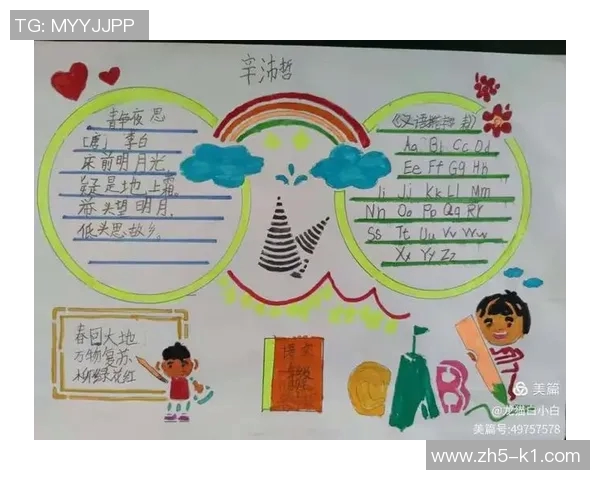 TG: MYYJJPP
辛沛哲
静夜思
[唐] 李白
床前明月光,
疑是地上霜。
举头望明月,
低头思故乡。
《汉语拼音
Aa Bb Cc Dd
Ee Ff Gg Hh
Ii Jj Kk Ll Mm
Nn Oo Pp Qq Rr
Ss Tt Uu Vv Ww
Xx Yy Zz
春回大地
万物复苏
柳绿花红
语文
B
美篇
@龙猫白小白
美篇号:49757578
www.zh5-k1.com